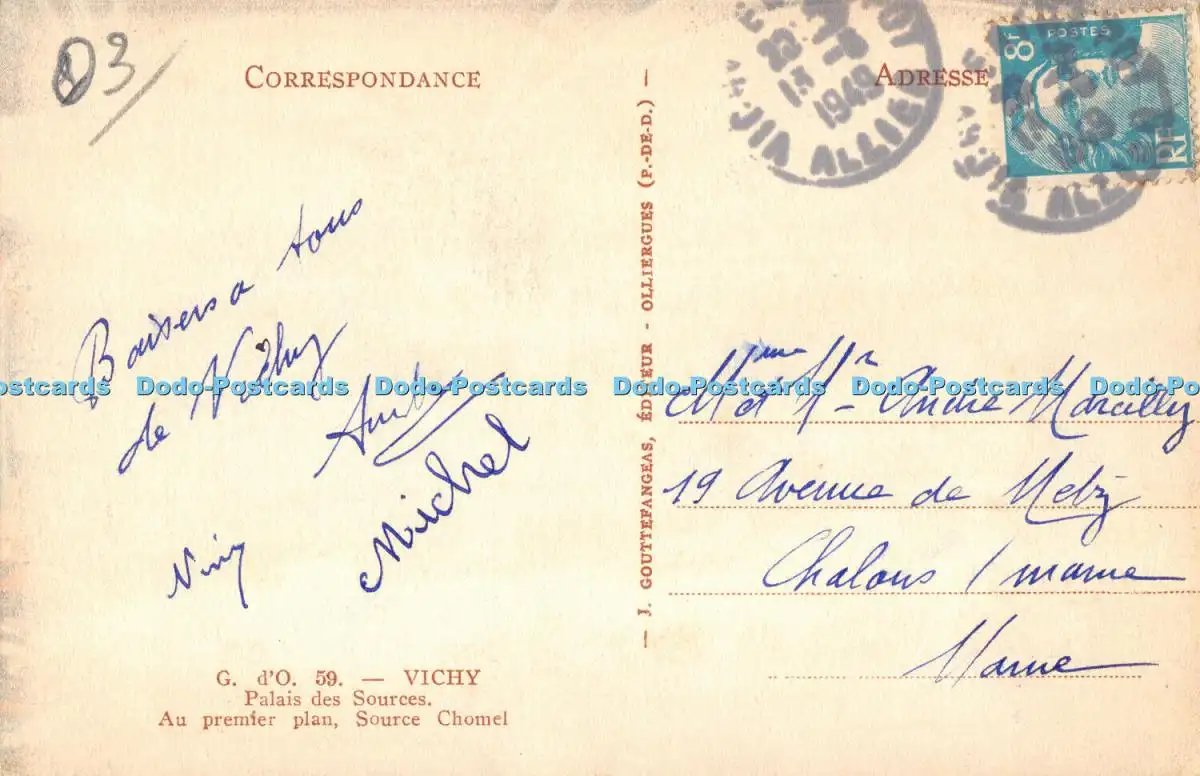 03
CORRESPONDANCE
ADRESSE
8F
POSTES
RF
1949
ALLIER
1949
Baisers a tous
de Vichy
Michel
J. GOUTTEFANGEAS, ÉDITEUR - OLLIERGUES (P.-DE-D.)
Dodo-Postcards Dodo-Postcards Dodo-Postcards Dodo-Postcards Dodo-Postcards Dodo-Postcards
Mme et Mr André Marcilly
19 Avenue de Metz
Chalons / marne
Marne
G. d'O. 59. — VICHY
Palais des Sources.
Au premier plan, Source Chomel